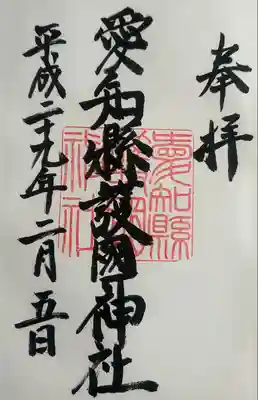 奉拝
愛知縣護國神社
平成二十九年二月五日
愛知縣
護國
神社